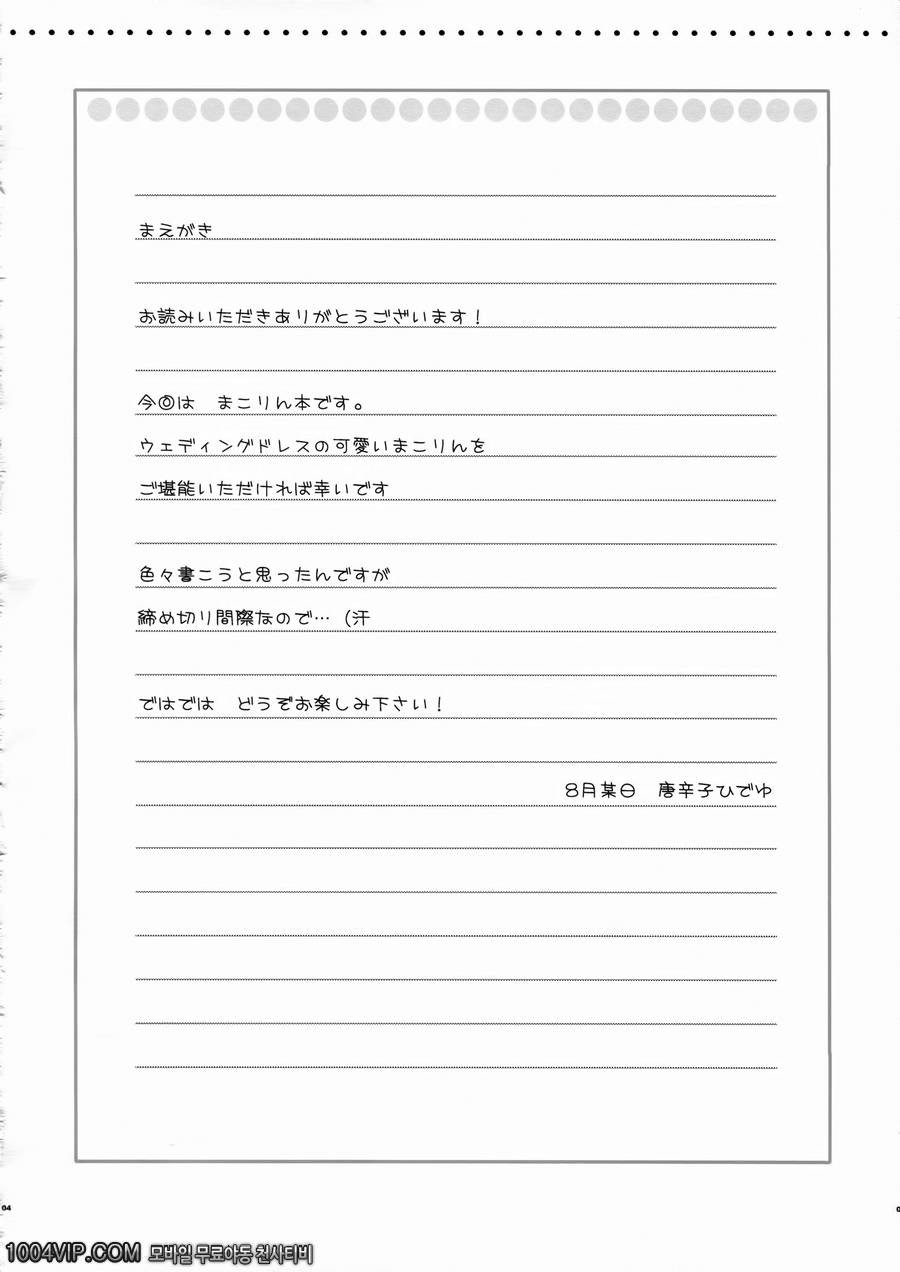 まえがき
お読みいただきありがとうございます！
今回は　まこりん本です。
ウェディングドレスの可愛いまこりんを
ご堪能いただければ幸いです
色々書こうと思ったんですが
締め切り間際なので…（汗
ではでは　どうぞお楽しみ下さい！
８月某日　唐辛子ひでゆ
04
1004VIP.COM 모바일 무료야동 천사티비